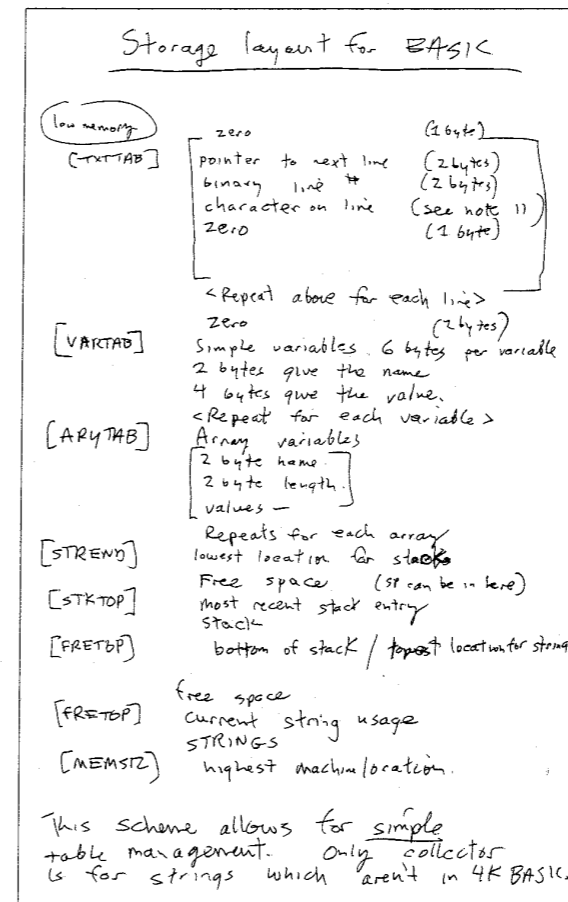 Storage layout for BASIC
low memory
zero (1 byte)
[TXTTAB]
pointer to next line (2 bytes)
binary line # (2 bytes)
character on line (see note 11)
zero (1 byte)
<Repeat above for each line>
zero (2 bytes)
[VARTAB] Simple variables. 6 bytes per variable
2 bytes give the name
4 bytes give the value.
<Repeat for each variable>
[ARYTAB] Array variables
2 byte name.
2 byte length.
values —
Repeats for each array
[STREND] lowest location for stack
Free space (SP can be in here)
[STKTOP] most recent stack entry
stack
[FRETOP] bottom of stack / location for string
free space
[FRETOP] current string usage
STRINGS
[MEMSIZ] highest machine location.
This scheme allows for simple
table management. Only collector
is for strings which aren't in 4K BASIC.